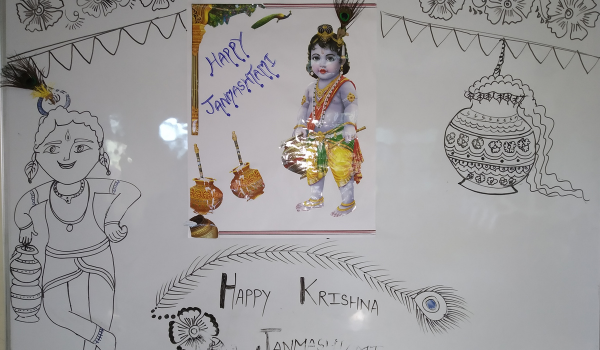 HAPPY
JANMASHTAMI
HAPPY KRISHNA